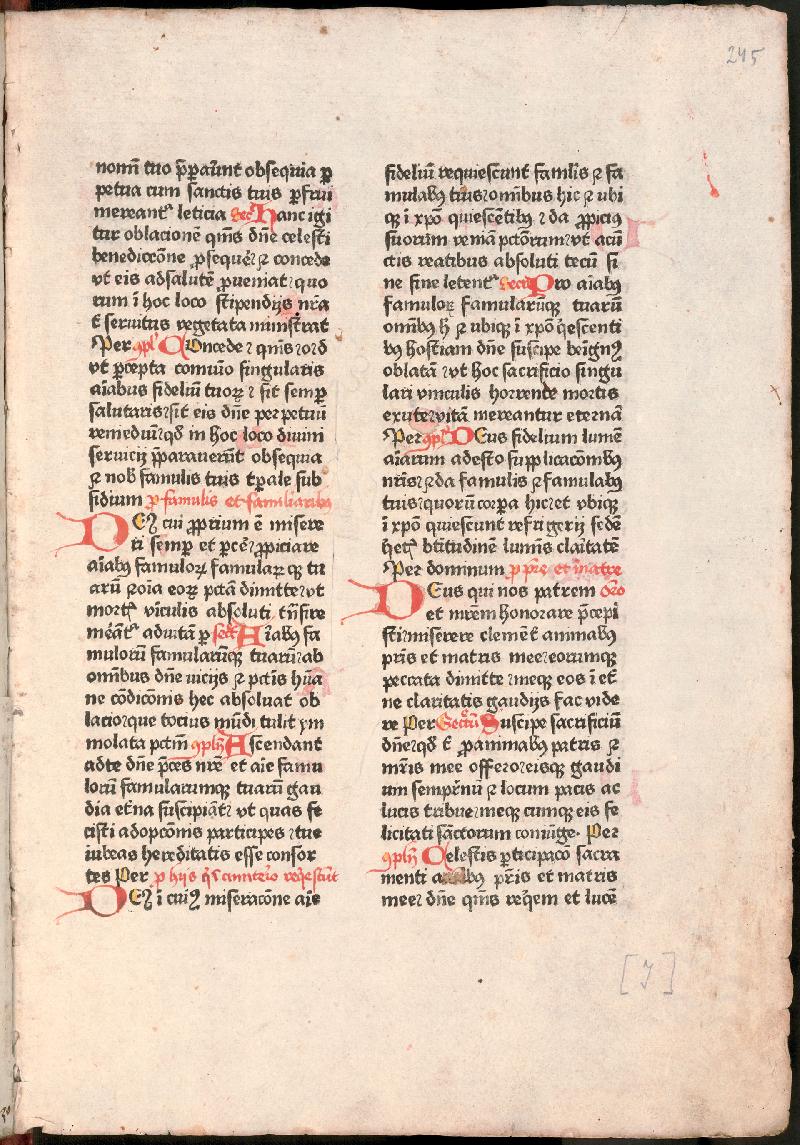 245
nom̄ tuo p̄paūnt obsequia ꝑ
petua cum sanctis tuis ꝑfrui
mereant᷑ leticia Secᷓ Hanc igi
tur oblacionē qm̄s dn̄e celesti
benediccōne ꝓsequē⁊ ⁊ concede
vt eis adsalutē ꝓueniat⁊quo
rum ī hoc loco stipendijs nr̄a
ē seruitus vegetata ministrat
Per ꝯpl̄ Concede⁊ qm̄s⁊o⁊d
vt ꝑcepta comūio singularis
aīabus fidelū tuoꝝ ⁊ sit semꝑ
salutaris⁊sit eis dn̄e perpetuū
remediū⁊qd̄ in hoc loco diuini
seruicij p̄parauerūt obsequia
⁊ nob̄ famulis tuis tꝑale sub
sidium ꝓ famulis et familiaribꝰ
DEꝰ cui ꝓprium ē misere
ri semꝑ et p̄cē⁊ꝓpiciare
aīabꝰ famuloꝝ famulaꝝ qꝫ tu
arū ⁊oīa eoꝝ pctā dimitte⁊vt
mortꝭ vīculis absoluti tn̄sire
mēāt᷑ aduitā ꝑ secᷓ Aīabꝰ fa
mulorū famularūqꝫ tuarū⁊ab
omībus dn̄e vicijs ⁊ pctīs hūa
ne cōdicōnis hec absoluat ob
lacio⁊que tocius mūdi tulit ym
molata pctm̄ ꝯplᷓ Ascendant
adte dn̄e p̄ces nr̄e et aīe famu
lorū famularumqꝫ tuarū gau
dia et̄na suscipiāt⁊ vt quas fe
cisti adopcōnis participes⁊tue
iubeas hereditatis esse consor
tes Per ꝓ hijs qⁱ ī cimiterio reqⁱescūt
DEꝰ ī cuiꝰ miseracōne aīe
fideliū requiescunt famlīs ⁊ fa
mulabꝰ tuis⁊omībus hic ⁊ ubi
qꝫ ī xpō quiescētibꝰ⁊da ꝓpiciꝰ
suorum veniā pctōrum⁊vt acū
ctis reatibus absoluti tecū si
ne fine letent᷑ Secrᷓ Pro aīabꝰ
famuloꝝ famularūqꝫ tuarū
omībꝰ h̄ ⁊ ubiqꝫ ī xpō qⁱescenti
bꝰ hostiam dn̄e suscipe beīgnꝰ
oblatā⁊vt hoc sacrificio singu
lari vinculis horrende mortis
exute⁊vitā mereantur eternā
Per ꝯplᷓ DEus fidelium lumē
aīarum adesto supplicacōnibꝰ
nr̄is⁊da famulis ⁊ famulabꝰ
tuis⁊quorū corpa hic⁊et vbiqꝫ
ī xpō quiescunt refrigerij sedē
qⁱetꝭ btītudinē lumīs claītatē
Per dominum ꝓ pr̄e et matre
DEus qui nos patrem orᷓo
et mr̄em honorare p̄cepi
sti⁊miserere clemēt̄ animabꝰ
pr̄is et matris mee⁊eorumqꝫ
peccata dimitte⁊meqꝫ eos ī et̄
ne claritatis gaudijs fac vide
re Per Secrᷓtū Suscipe sacrificiū
dn̄e⁊qd̄ t̄ ꝓanimabꝰ patris ⁊
mr̄is mee offero⁊eisqꝫ gaudi
um sempr̄nū ⁊ locum pacis ac
lucis tribue⁊meqꝫ cumqꝫ eis fe
licitati sāctorum coniūge. Per
ꝯplᷓ Celestis ꝑticipacō sacra
menti pr̄is et matris
mee⁊ dn̄e qm̄s req̄em et lucē
[7]